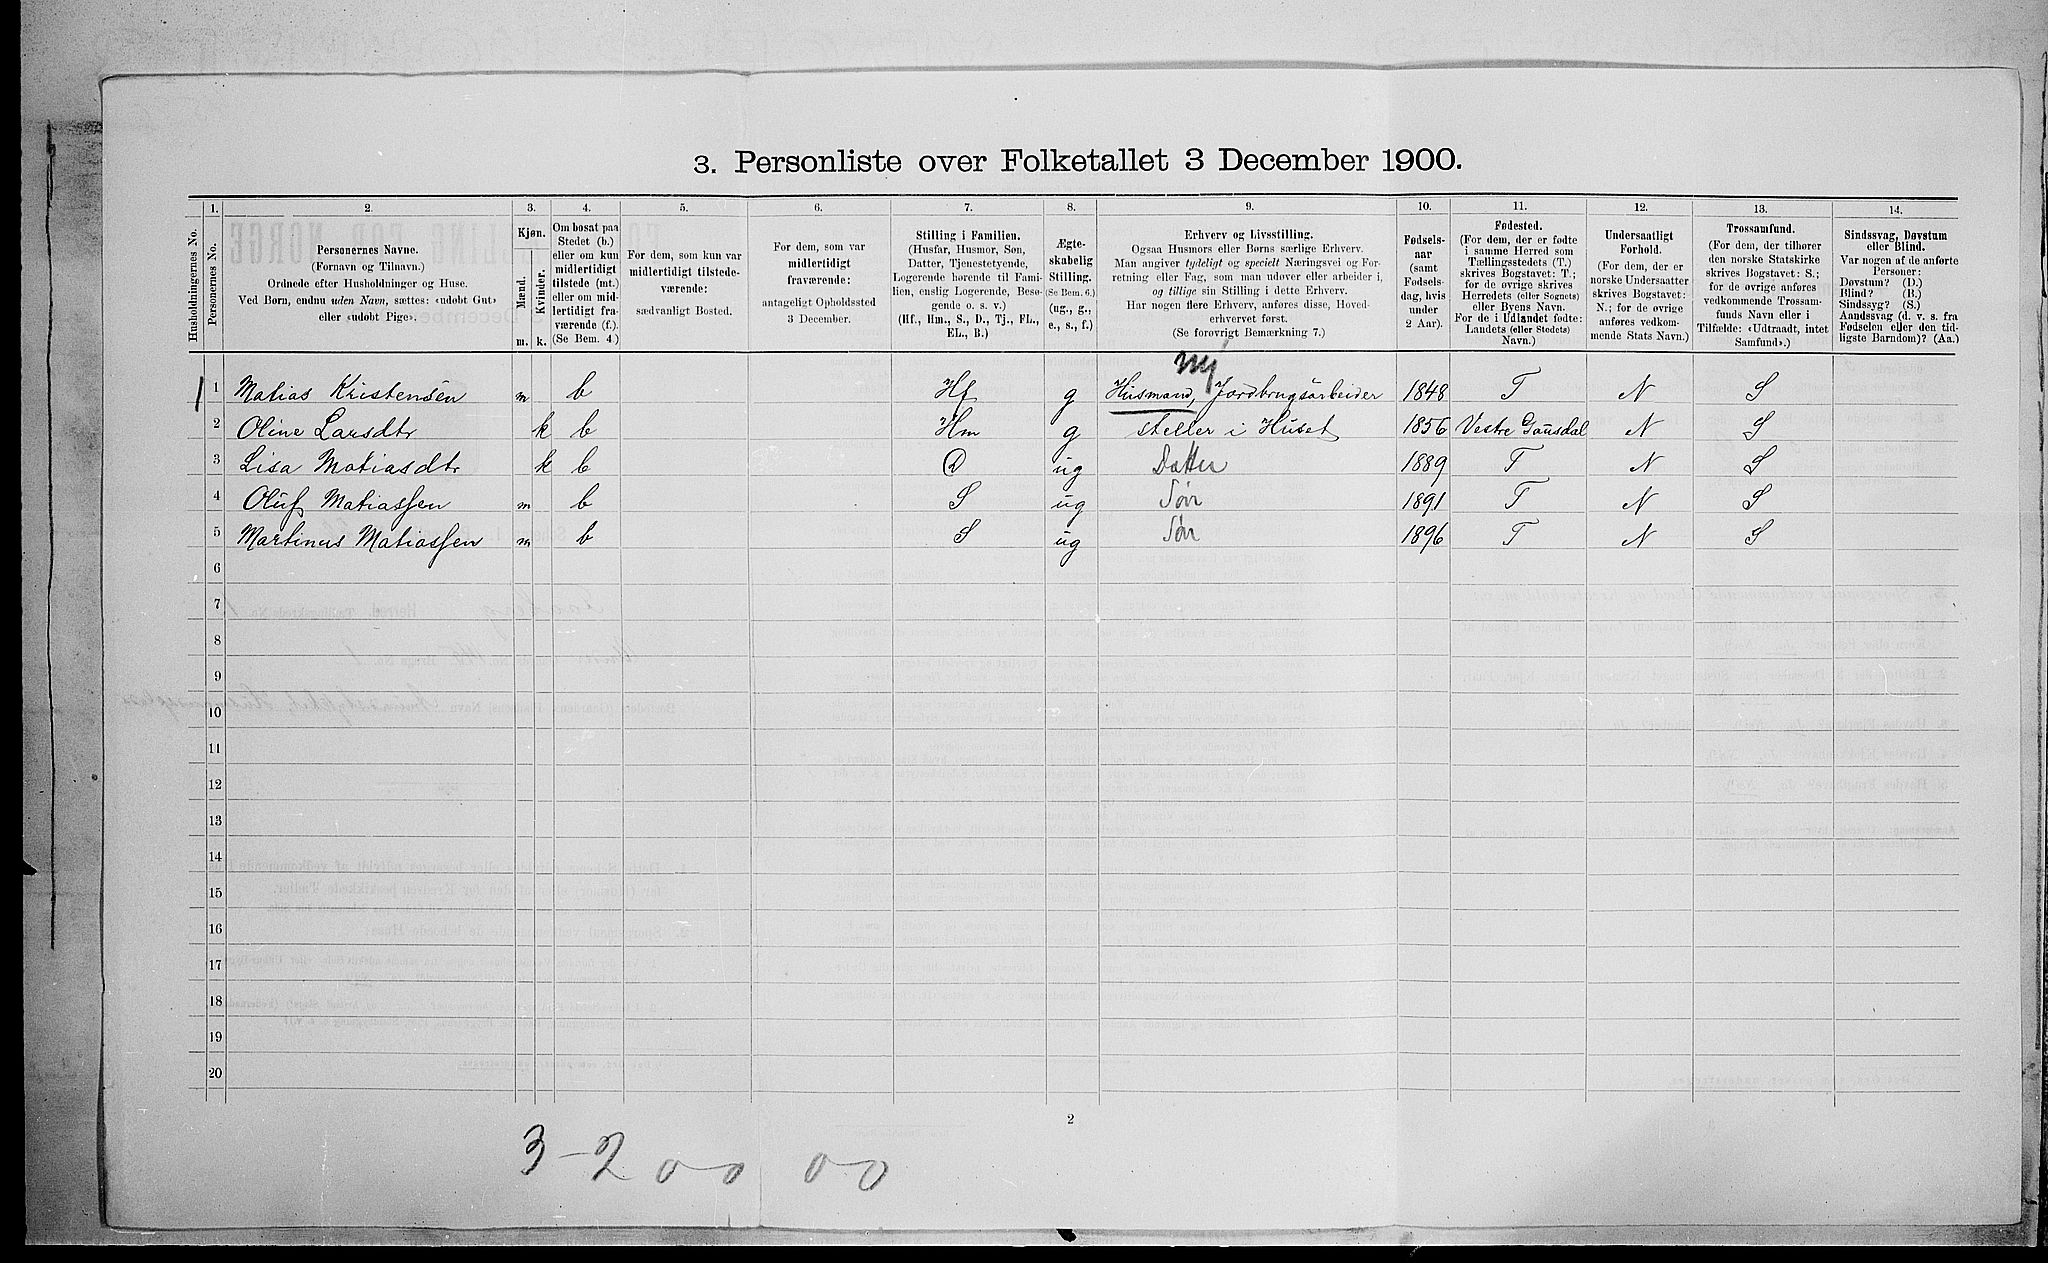 3. Personliste over Folketallet 3 December 1900.
1. 2. 3. 4. 5. 6. 7. 8. 9. 10. 11. 12. 13. 14.
Husholdningernes No.
Personernes No.
Personernes Navne.
(Fornavn og Tilnavn.)
Ordnede efter Husholdninger og Huse.
Ved Børn, endnu uden Navn, sættes: «udøbt Gut»
eller «udøbt Pige».
Kjøn.
Mænd.
Kvinder.
m. k.
Om bosat paa
Stedet (b.)
eller om kun
midlertidigt
tilstede (mt.)
eller om mid-
lertidigt fra-
værende (f.)
(Se Bem. 4.)
For dem, som kun var
midlertidigt tilstede-
værende:
sædvanligt Bosted.
For dem, som var
midlertidigt
fraværende:
antageligt Opholdssted
3 December.
Stilling i Familien.
(Husfar, Husmor, Søn,
Datter, Tjenestetyende,
Logerende hørende til Fami-
lien, enslig Logerende, Besø-
gende o. s. v.)
(Hf., Hm., S., D., Tj., FL.,
EL., B.)
Ægte-
skabelig
Stilling.
(Se Bem. 6.)
(ug., g.,
e., s., f.)
Erhverv og Livsstilling.
Ogsaa Husmors eller Børns særlige Erhverv.
Man angiver tydeligt og specielt Næringsvei og For-
retning eller Fag, som man udøver eller arbeider i,
og tillige sin Stilling i dette Erhverv.
Har nogen flere Erhverv, anføres disse, Hoved-
erhvervet først.
(Se forøvrigt Bemærkning 7.)
Fødsels-
aar
(samt
Fødsels-
dag, hvis
under
2 Aar).
Fødested.
(For dem, der er fødte
i samme Herred som
Tællingsstedets (T.)
skrives Bogstavet: T.;
for de øvrige skrives
Herredets (eller Sognets)
eller Byens Navn.
For de i Udlandet fødte:
Landets (eller Stedets)
Navn.)
Undersaatligt
Forhold.
(For dem, der er
norske Undersaatter
skrives Bogstavet:
N.; for de øvrige
anføres vedkom-
mende Stats Navn.)
Trossamfund.
(For dem, der tilhører
den norske Statskirke
skrives Bogstavet: S.;
for de øvrige anføres
vedkommende Trossam-
funds Navn eller i
Tilfælde: «Udtraadt, intet
Samfund».)
Sindssvag, Døvstum
eller Blind.
Var nogen af de anførte
Personer:
Døvstum? (D.)
Blind? (B.)
Sindssyg? (S.)
Aandssvag (d. v. s. fra
Fødselen eller den tid-
ligste Barndom)? (Aa.)
1 1 Matias Kristensen m b Hf g Husmand, Jordbrugsarbeider 1848 T N S
2 Oline Larsdtr k b Hm g steller i Huset 1856 Vestre Gausdal N S
3 Lisa Matiasdtr k b D ug Datter 1889 T N S
4 Oluf Matiassen m b S ug Søn 1891 T N S
5 Martinus Matiassen m b S ug Søn 1896 T N S
6
7
8
9
10
11
12
13
14
15
16
17
18
19
20
2
3-2 00 00